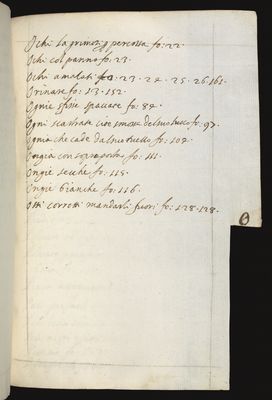 Ochi la prima p percossa fo: 22.
Ochi col panno fo. 23.
Ochi amalati fo: 23. 24. 25. 26. 161.
Orinare fo: 13. 152.
Ognie fesse spaccate fo: 84.
Ogni scastrate cioè smosse dal suo fo: 97.
Ognia che cade dal suo tuello fo: 109.
Ongia con sopraposta fo: 111.
Ongie secche fo: 115.
Ongie bianche fo: 116.
Ossi corretti mandarli fuori fo: 128. 128.
O